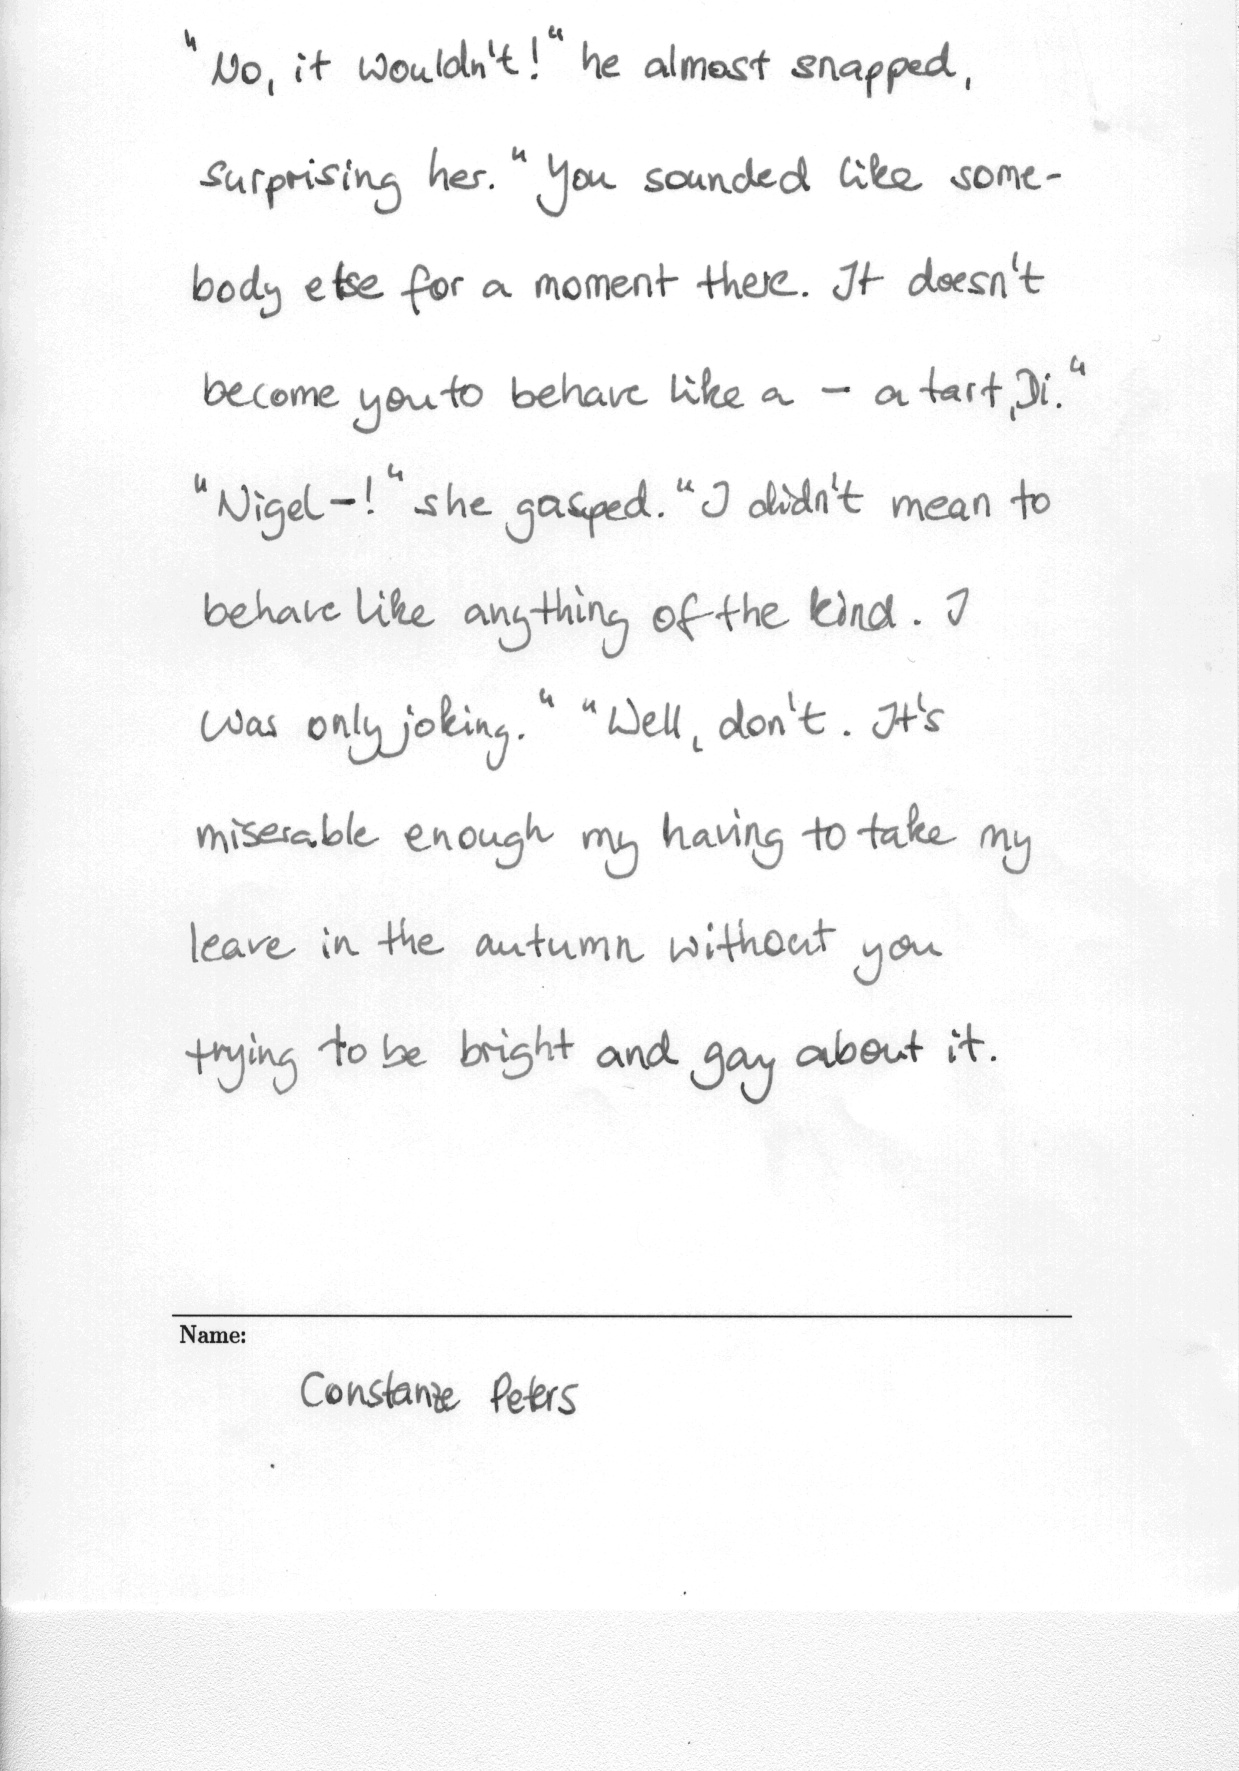 "No, it wouldn't!" he almost snapped,
surprising her. "You sounded like some-
body else for a moment there. It doesn't
become you to behave like a - a tart, Di."
"Nigel-!" she gasped. "I didn't mean to
behave like anything of the kind. I
was only joking." "Well, don't. It's
miserable enough my having to take my
leave in the autumn without you
trying to be bright and gay about it.
Name:
Constanze Peters